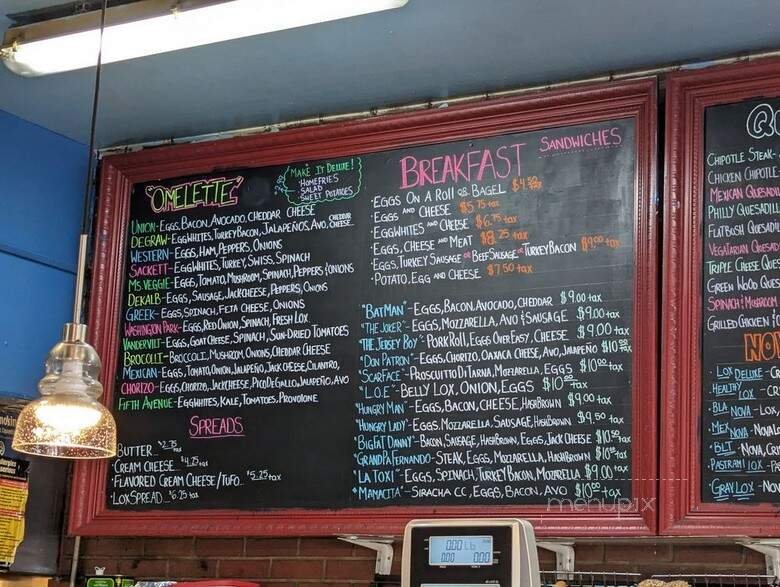 "OMELETTE"
MAKE IT DELUXE!
·HOMEFRIES
SALAD
SWEET POTATOES
UNION-EGGS, BACON, AVOCADO, CHEDDAR CHEESE
DEGRAW-EGGWHITES, TURKEY BACON, JALAPEÑOS, AVO, CHEDDAR CHEESE
WESTERN-EGGS, HAM, PEPPERS, ONIONS
SACKETT-EGGWHITES, TURKEY, SWISS, SPINACH
MS. VEGGIE-EGGS, TOMATO, MUSHROOM, SPINACH, PEPPERS & ONIONS
DEKALB-EGGS, SAUSAGE, JACK CHEESE, PEPPERS, ONIONS
GREEK-EGGS, SPINACH, FETA CHEESE, ONIONS
WASHINGTON PARK-EGGS, RED ONION, SPINACH, FRESH LOX
VANDERVILT-EGGS, GOAT CHEESE, SPINACH, SUN-DRIED TOMATOES
BROCOLLI-BROCCOLI, MUSHROOM, ONIONS, CHEDDAR CHEESE
MEXICAN-EGGS, TOMATO, ONION, JALAPEÑO, JACK CHEESE, CILANTRO,
CHORIZO-EGGS, CHORIZO, JACK CHEESE, PICO DE GALLO, JALAPEÑO, AVO
FIFTH AVENUE-EGGWHITES, KALE, TOMATOES, PROVOLONE
SPREADS
BUTTER...$2.75
CREAM CHEESE...$4.25
·FLAVORED CREAM CHEESE/TUFO...$5.25 tax
·LOX SPREAD...$6.25 tax
BREAKFAST SANDWICHES
·EGGS ON A ROLL OR BAGEL $4.50 tax
·EGGS AND CHEESE $5.75 tax
·EGGWHITES AND CHEESE $6.75 tax
·EGGS, CHEESE AND MEAT $8.25 tax
·EGGS, TURKEY SAUSAGE OR BEEF SAUSAGE OR TURKEY BACON $9.00 tax
·POTATO, EGG AND CHEESE $7.50 tax
"BATMAN"-EGGS, BACON, AVOCADO, CHEDDAR $9.00 tax
"THE JOKER"-EGGS, MOZZARELLA, AVO & SAUSAGE $9.00 tax
"THE JERSEY BOY" PORK ROLL, EGGS OVER EASY, CHEESE $9.00 tax
"DON PATRON"-EGGS, CHORIZO, OAXACA CHEESE, AVO, JALAPEÑO $10.00 tax
"SCARFACE"-PROSCUITTO DI TARNA, MOZZARELLA, EGGS $10.00 tax
"L.O.E"-BELLY LOX, ONION, EGGS $10.00 tax
"HUNGRY MAN"-EGGS, BACON, CHEESE, HASHBROWN $9.00 tax
"HUNGRY LADY"-EGGS, MOZZARELLA, SAUSAGE, HASHBROWN $9.50 tax
"BIG FAT DANNY"-BACON, SAUSAGE, HASHBROWN, EGGS, JACK CHEESE $10.50 tax
"GRANDPA FERNANDO-STEAK, EGGS, MOZZARELLA, HASHBROWN $10.00 tax
"LA TOXI"-EGGS, SPINACH, TURKEY BACON, MOZARELLA $9.00 tax
"MAMACITA"-SIRACHA CC, EGGS, BACON, AVO $10.00 tax
menupix
CHIPOTLE STEAK-
CHICKEN CHIPOTLE-
MEXICAN QUESAD
PHILLY QUESADILL
FLATBUSH QUESAD
VEGATARIAN QUESAD
TRIPLE CHEESE QUES
GREEN WOOD QUES
SPINACH & MUSHROOM
GRILLED CHICKEN &
NO
·LOX DELUXE-CR
HEALTHY LOX
BLA NOVA-LOX
MEX NOVA-NOVA L
BLT NOVA,
PASTRAMI LOX
GRAV LOX-NOV
0.00 LB
0.00
0.00